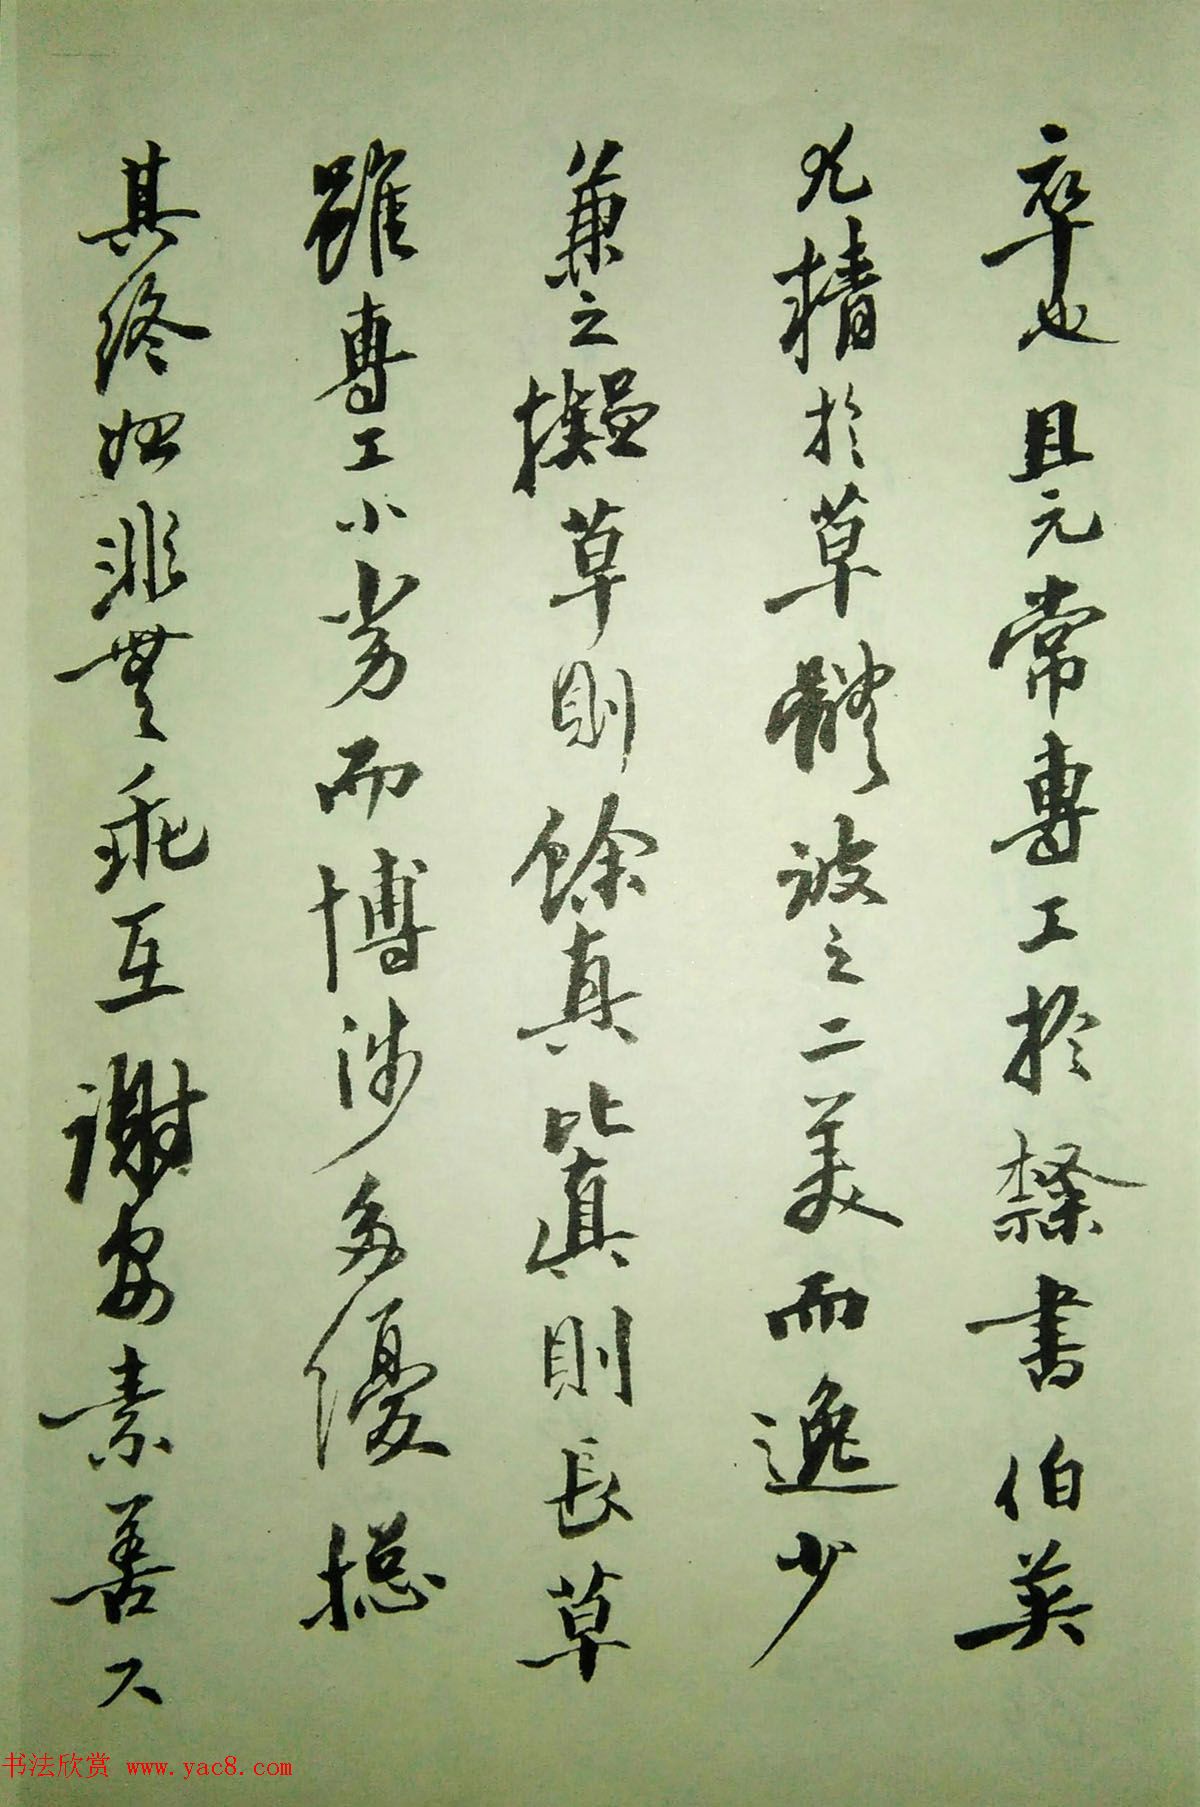 卒也且元常專工於隸書伯英
尤精於草體彼之二美而逸少
兼之擬草則餘真比真則長草
雖專工小劣而博涉多優摠
其終始匪無乖互謝安素善尺
书法欣赏 www.yac8.com